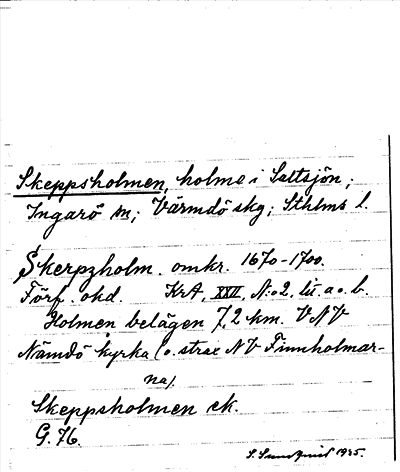 Skeppsholmen, holme i Saltsjön;
Ingarö sn; Värmdö skg; Sthlms l.
Skerpzholm. omkr. 1670-1700.
Förf. okd. KrA, XXII, N:o 2, lit a o. b.
Holmen belägen 7,2 km. VNV
Nämdö kyrka (o. strax NV Finnholmar-
na).
Skeppsholmen ek.
G. 76.
1935.